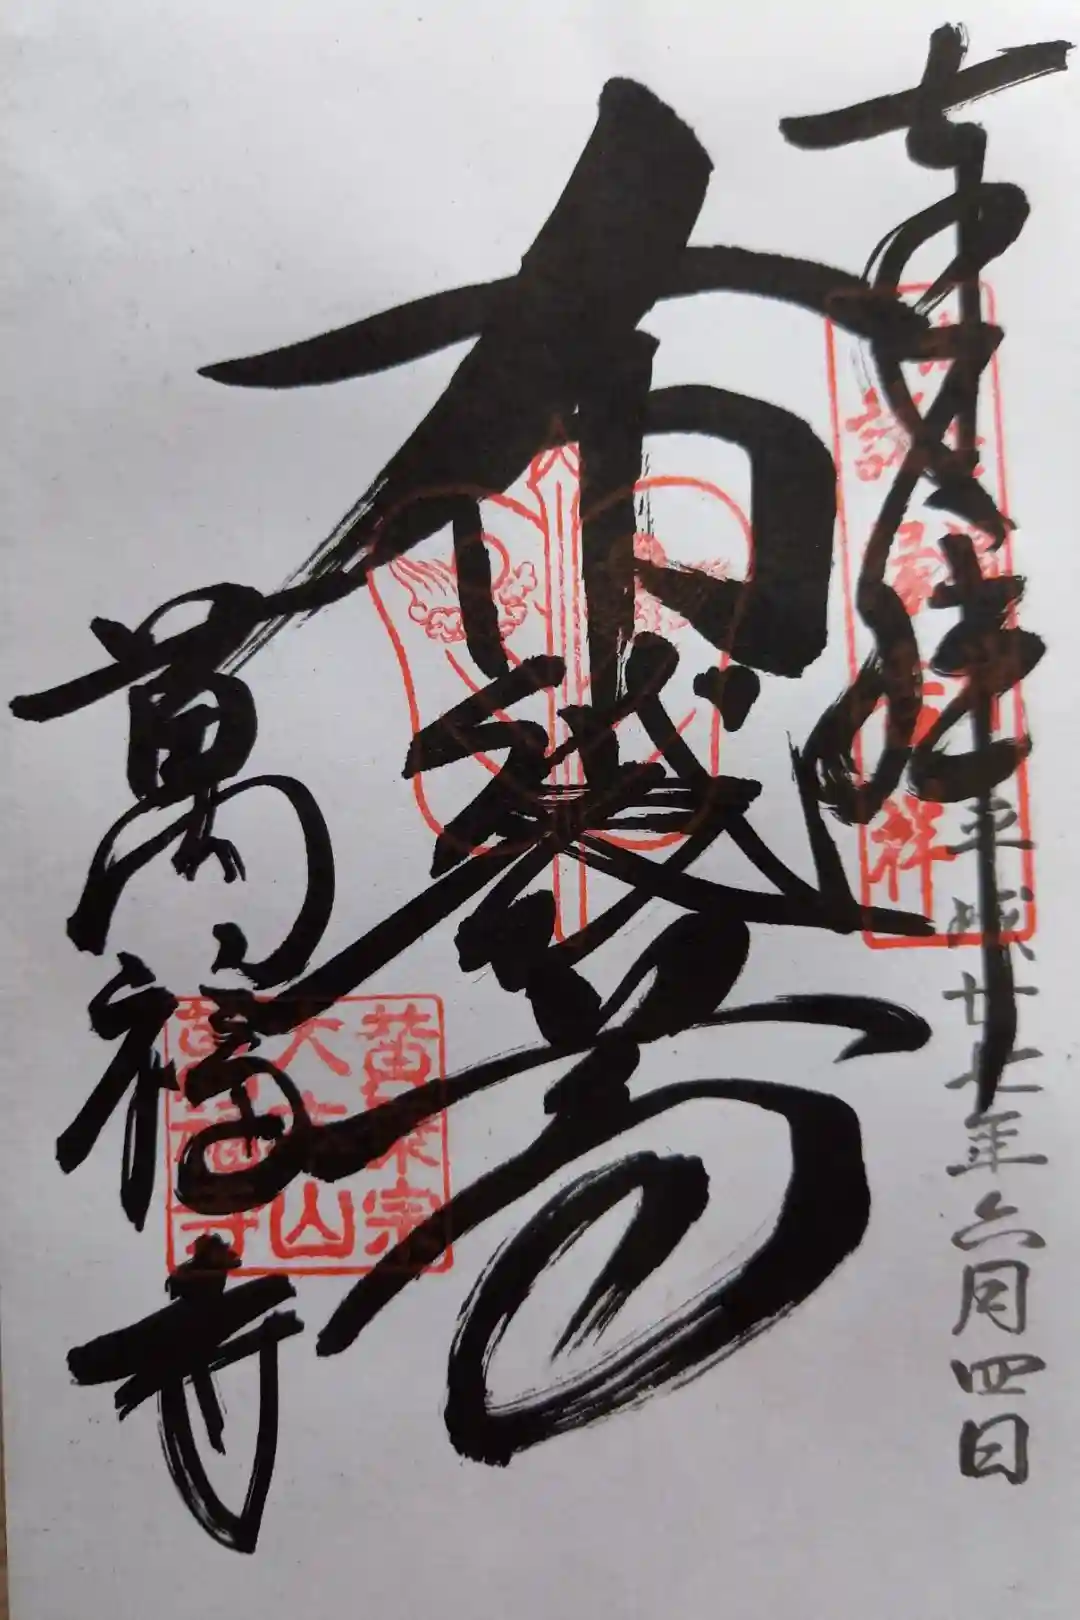 奉拝
平成廿七年六月四日
布袋尊
萬福寺
黄檗宗
大本山
萬福寺